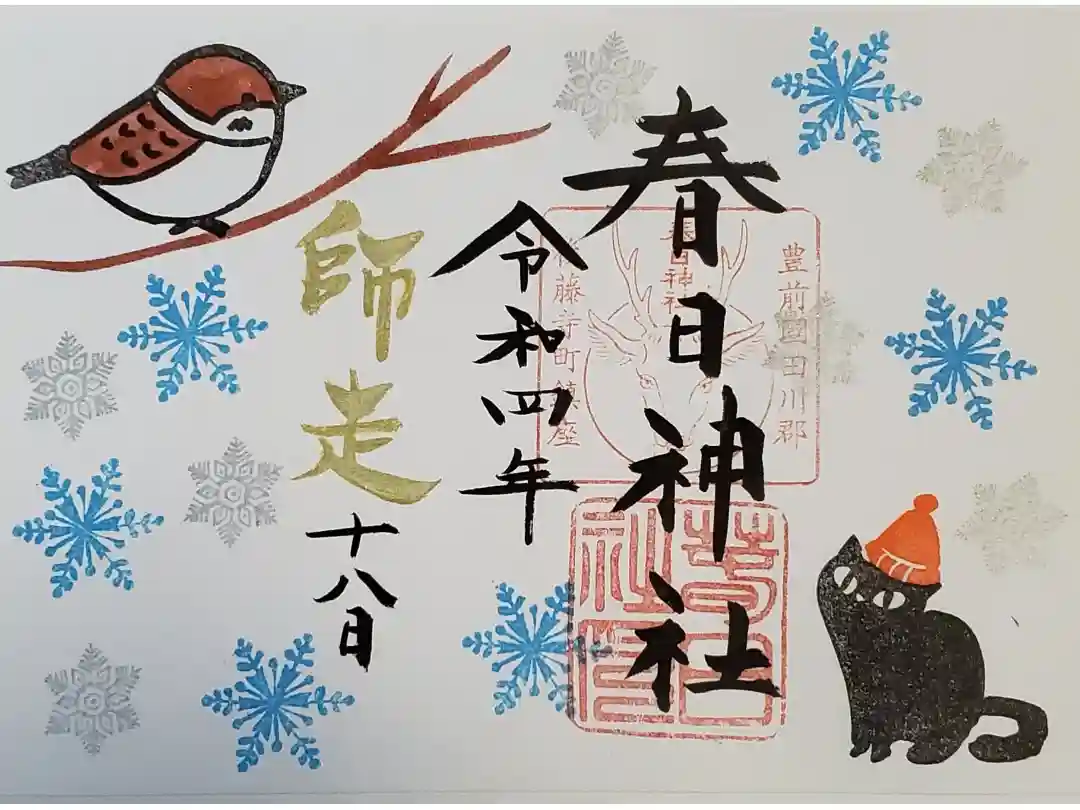 豊前國田川郡
春日神社
春日神社
後藤寺町鎮座
春日
社印
令和四年
師走
十八日